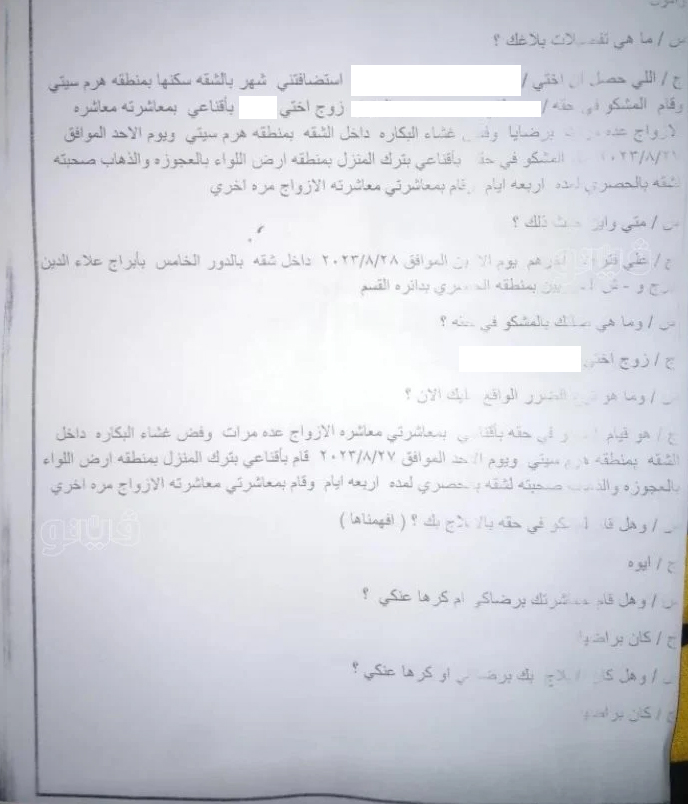 س / ما هي تفصيلات بلاغك ؟
ج / اللي حصل ان اختي / استضافتني شهر بالشقه سكنها بمنطقه هرم سيتي
وقام المشكو في حقه / زوج اختي بأقناعي بمعاشرته معاشره
لازواج عده مرات برضايا وفض غشاء البكاره داخل الشقه بمنطقه هرم سيتي ويوم الاحد الموافق
٢٠٢٣/٨/٢٧ المشكو في حقه بأقناعي بترك المنزل بمنطقه ارض اللواء بالعجوزه والذهاب صحبته
لشقه بالحصري لمده اربعه ايام وقام بمعاشرتي معاشرته الازواج مره اخري
س / متي واين حدث ذلك ؟
ج / علي يوم الاثنين الموافق ٢٠٢٣/٨/٢٨ داخل شقه بالدور الخامس بأبراج علاء الدين
برج و - ش بمنطقه الحصري بدائره القسم
س / وما هي صلتك بالمشكو في حقه ؟
ج / زوج اختي
س / وما هو الضرر الواقع عليك الان ؟
ج / هو قيام في حقه بأقناعي بمعاشرتي معاشره الازواج عده مرات وفض غشاء البكاره داخل
الشقه بمنطقه هرم سيتي ويوم الاحد الموافق ٢٠٢٣/٨/٢٧ قام بأقناعي بترك المنزل بمنطقه ارض اللواء
بالعجوزه والذهاب صحبته لشقه بالحصري لمده اربعه ايام وقام بمعاشرتي معاشرته الازواج مره اخري
س / وهل قام المشكو في حقه بالايلاج بك ؟ ( افهمناها )
ج / ايوه
س / وهل قام بمعاشرتك برضاكي ام كرها عنكي ؟
ج / كان براضيا
س / وهل كان الايلاج بك برضاكي او كرها عنكي ؟
ج / كان براضيا